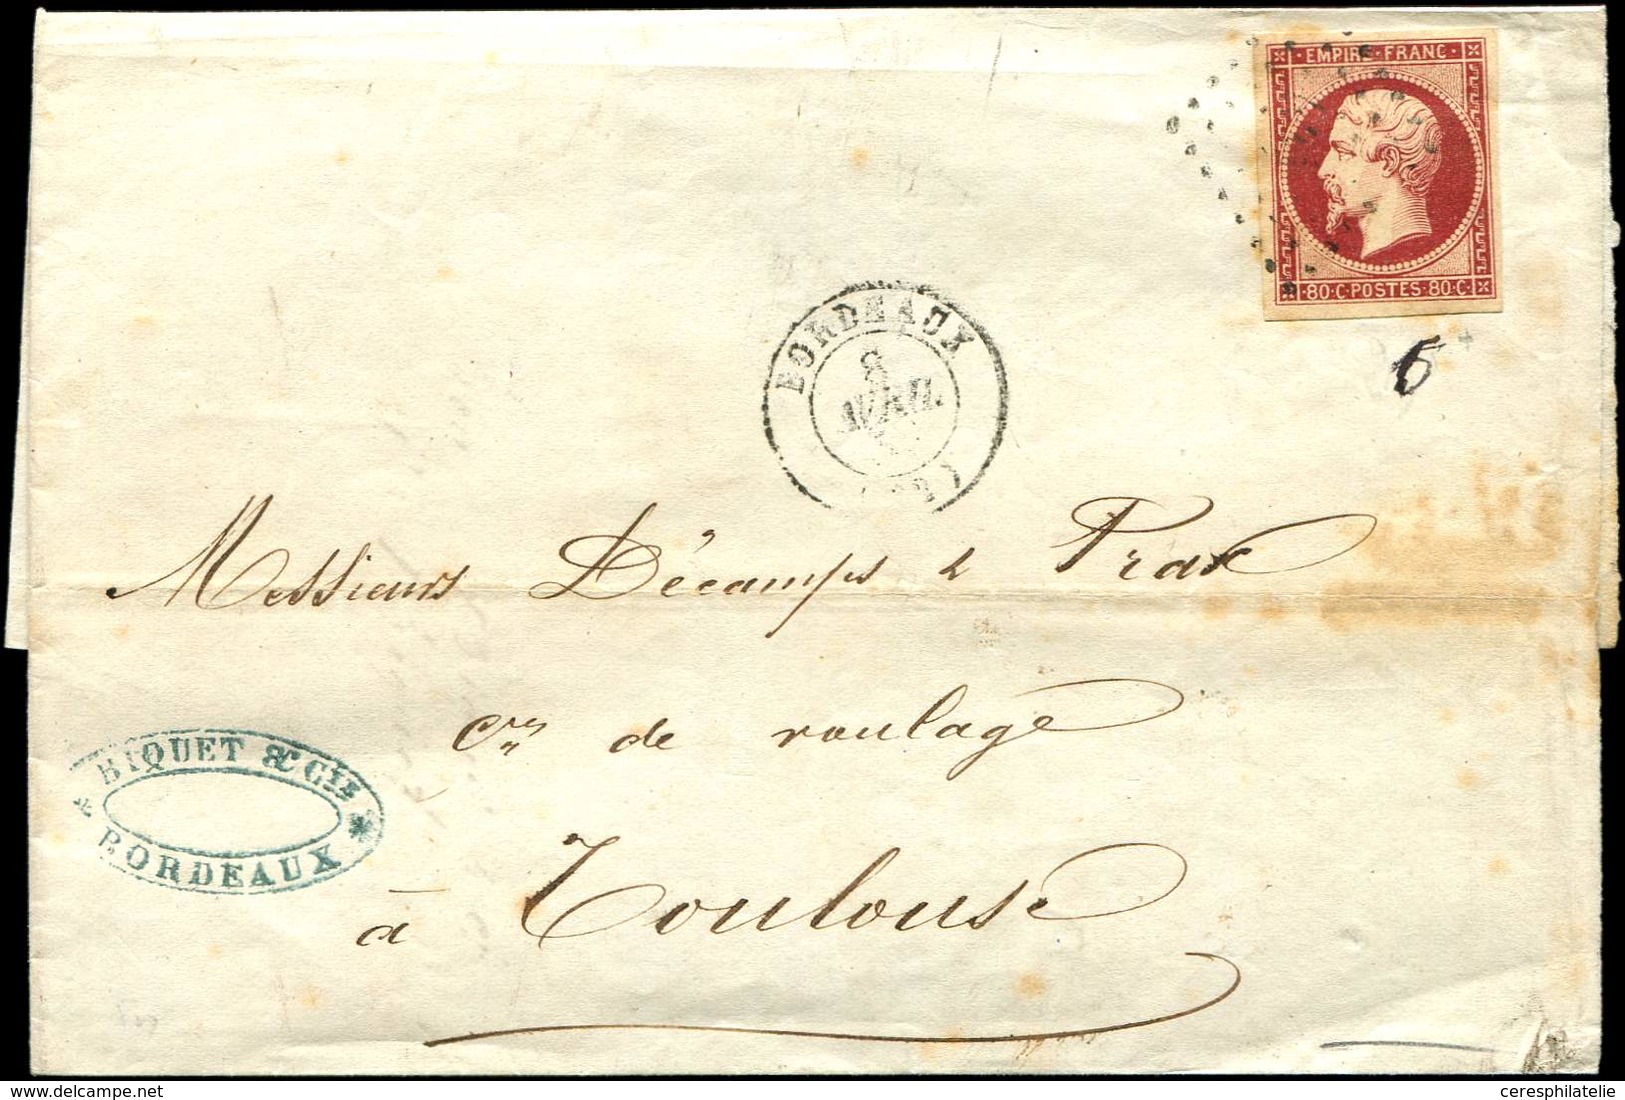 EMPIRE · FRANC ·
· 80 · C · POSTES · 80 · C ·
BORDEAUX
8
AVRIL
6
Messieurs Décamps & Prax
Cres de roulage
à Toulouse
BIQUET & CIE
BORDEAUX
ceresphilatelie